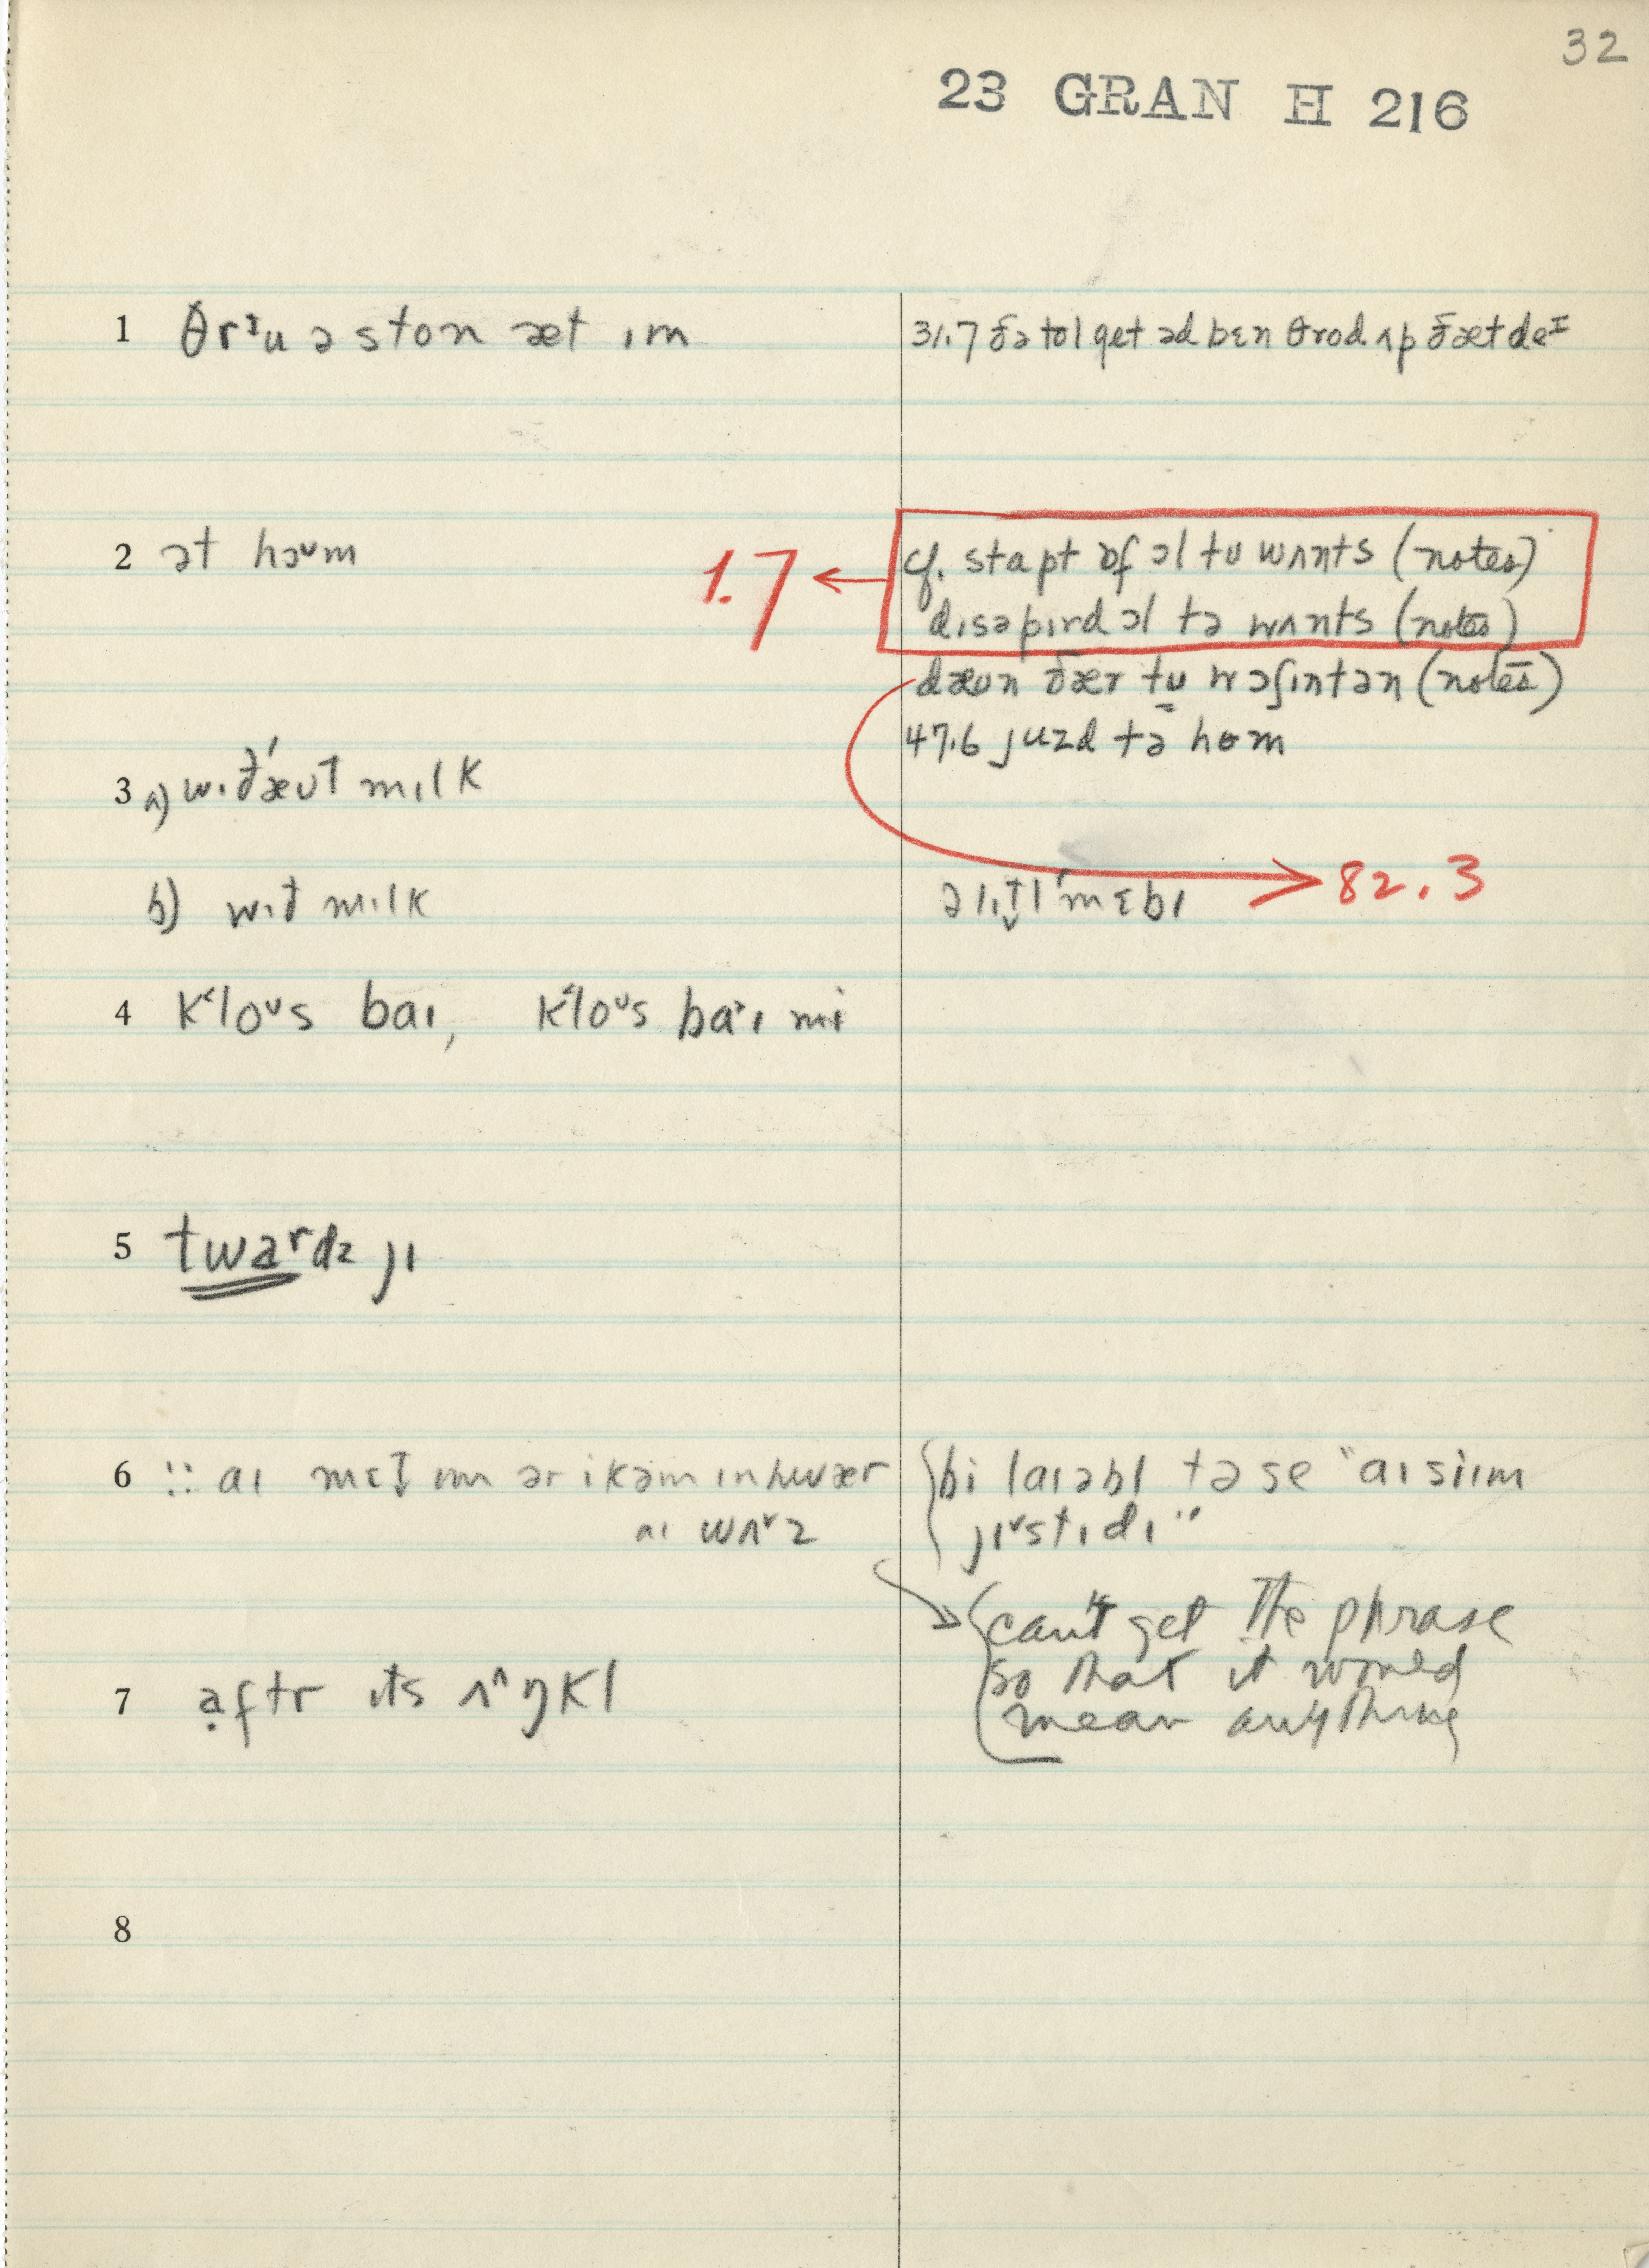 32
23 GRAN H 216
1 θrᶤu ə ston æt ɪm
31.7 ðə tol get əd bɛn θrod ʌp ðæt deᶦ
2 ət hɔᵘm
1.7
cf. stapt ɒf ɔl tu wʌnts (notes)
dɪsəpɪrd ɔl tə wʌnts (notes)
dæun ðær tu wɔʃɪntən (notes)
47.6 juzd tə hom
3 a) wɪð'æut mɪlk
b) wɪð mɪlk
ə lɪt̬l 'mɛbɪ
82.3
4 k‘loᵘs baɪ, k‘loᵘs baɪ mi
5 twardz jɪ
6 :: aɪ mɛt ɪm ər i kəm ɪn hwær
aɪ wʌᵛz
bi laɪəbl tə se "aɪ siɪm
jɪᵛstɪdɪ"
can't get the phrase
so that it would
mean anything
7 aftr ɪts ʌ^ŋkl
8